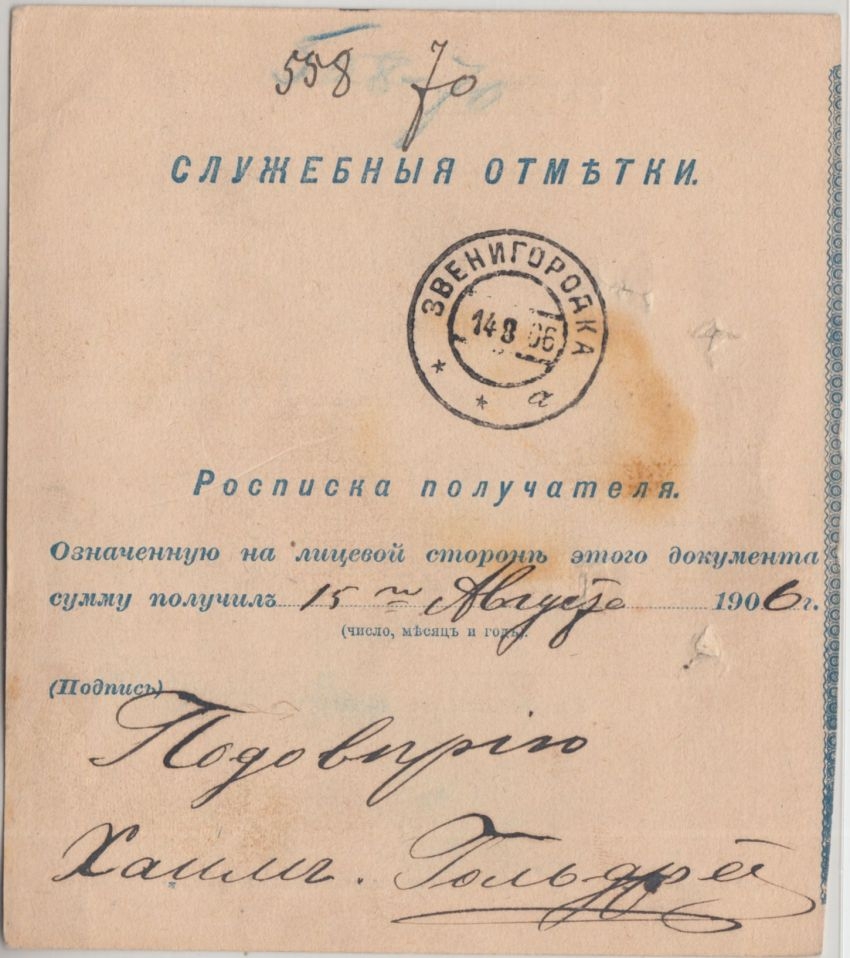 558 70
СЛУЖЕБНЫЯ ОТМѢТКИ.
ЗВЕНИГОРОДКА
14 8 06
а
Росписка получателя.
Означенную на лицевой сторонѣ этого документа
сумму получилъ 15 го Августа 1906 г.
(число, мѣсяцъ и годъ).
(Подпись)
По довѣрію
Хаимъ. Гольдре